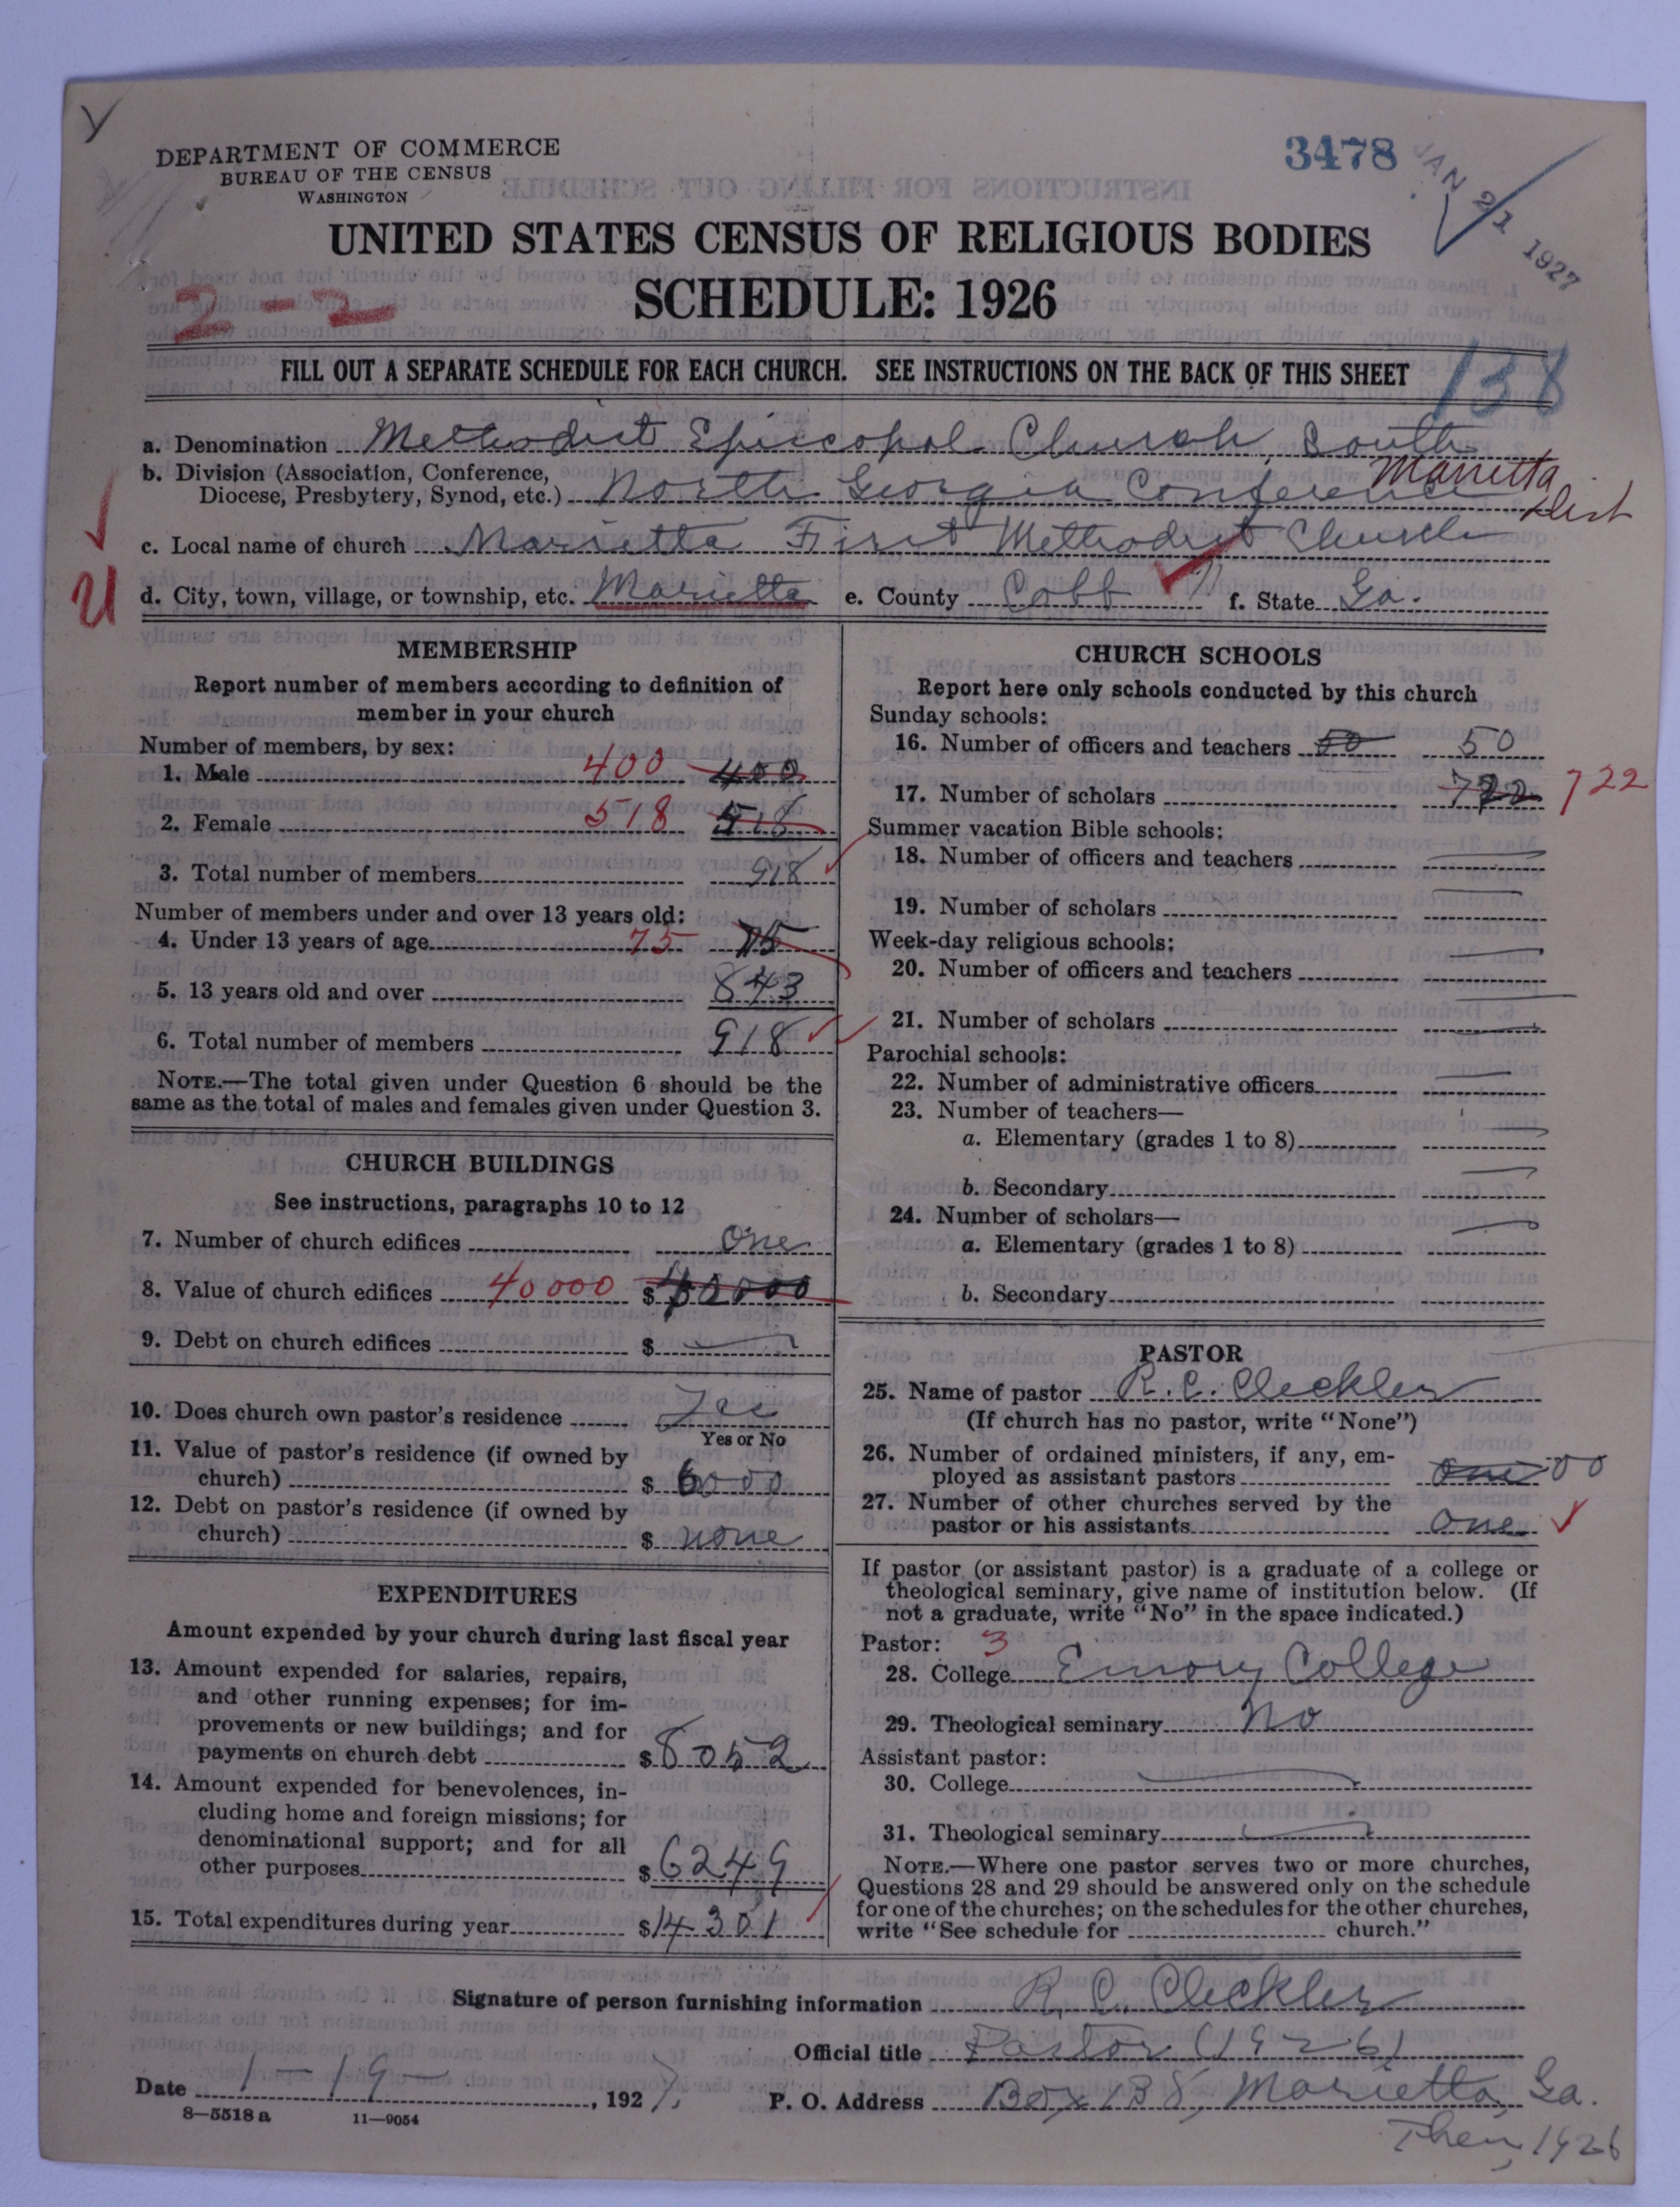 Y
DEPARTMENT OF COMMERCE
BUREAU OF THE CENSUS
WASHINGTON
3478
JAN 21 1927
UNITED STATES CENSUS OF RELIGIOUS BODIES
SCHEDULE: 1926
2-2
FILL OUT A SEPARATE SCHEDULE FOR EACH CHURCH. SEE INSTRUCTIONS ON THE BACK OF THIS SHEET
138
a. Denomination Methodist Episcopal Church, South
b. Division (Association, Conference,
Diocese, Presbytery, Synod, etc.) North Georgia Conference Marietta Dist
c. Local name of church Marietta First Methodist Church
d. City, town, village, or township, etc. Marietta e. County Cobb f. State Ga.
MEMBERSHIP
Report number of members according to definition of
member in your church
Number of members, by sex:
1. Male 400 400
2. Female 518 518
3. Total number of members 918
Number of members under and over 13 years old:
4. Under 13 years of age 75 75
5. 13 years old and over 843
6. Total number of members 918
NOTE.—The total given under Question 6 should be the
same as the total of males and females given under Question 3.
CHURCH BUILDINGS
See instructions, paragraphs 10 to 12
7. Number of church edifices One
8. Value of church edifices 40000 $ 40000
9. Debt on church edifices $
10. Does church own pastor's residence Yes
Yes or No
11. Value of pastor's residence (if owned by
church) $ 6000
12. Debt on pastor's residence (if owned by
church) $ none
EXPENDITURES
Amount expended by your church during last fiscal year
13. Amount expended for salaries, repairs,
and other running expenses; for im-
provements or new buildings; and for
payments on church debt $ 8052
14. Amount expended for benevolences, in-
cluding home and foreign missions; for
denominational support; and for all
other purposes $ 6249
15. Total expenditures during year $ 14301
CHURCH SCHOOLS
Report here only schools conducted by this church
Sunday schools:
16. Number of officers and teachers 50 50
17. Number of scholars 722 722
Summer vacation Bible schools:
18. Number of officers and teachers
19. Number of scholars
Week-day religious schools:
20. Number of officers and teachers
21. Number of scholars
Parochial schools:
22. Number of administrative officers
23. Number of teachers—
a. Elementary (grades 1 to 8)
b. Secondary
24. Number of scholars—
a. Elementary (grades 1 to 8)
b. Secondary
PASTOR
25. Name of pastor R. C. Cleckler
(If church has no pastor, write "None")
26. Number of ordained ministers, if any, em-
ployed as assistant pastors One 00
27. Number of other churches served by the
pastor or his assistants One
If pastor (or assistant pastor) is a graduate of a college or
theological seminary, give name of institution below. (If
not a graduate, write "No" in the space indicated.)
Pastor: 3
28. College Emory College
29. Theological seminary No
Assistant pastor:
30. College
31. Theological seminary
NOTE.—Where one pastor serves two or more churches,
Questions 28 and 29 should be answered only on the schedule
for one of the churches; on the schedules for the other churches,
write "See schedule for church."
Signature of person furnishing information R. C. Cleckler
Official title Pastor (1926)
Date 1-19-, 1927. P. O. Address Box 138, Marietta, Ga.
8—5518 a 11—9054
Then, 1926